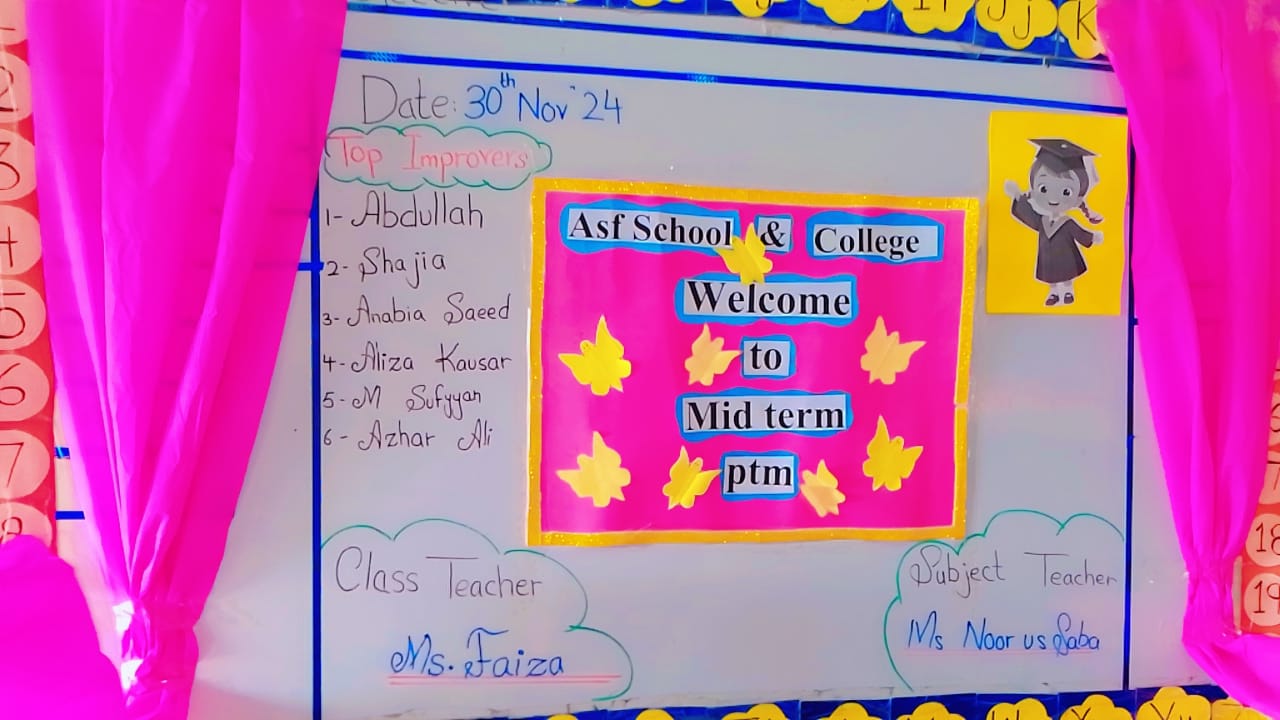 Date: 30th Nov '24
Top Improvers
1- Abdullah
2- Shajia
3- Anabia Saeed
4- Aliza Kausar
5- M Sufyyan
6- Azhar Ali
Asf School & College
Welcome
to
Mid term
ptm
Class Teacher
Ms. Faiza
Subject Teacher
Ms Noor us Saba
K
2
3
4
5
6
7
8
18
19